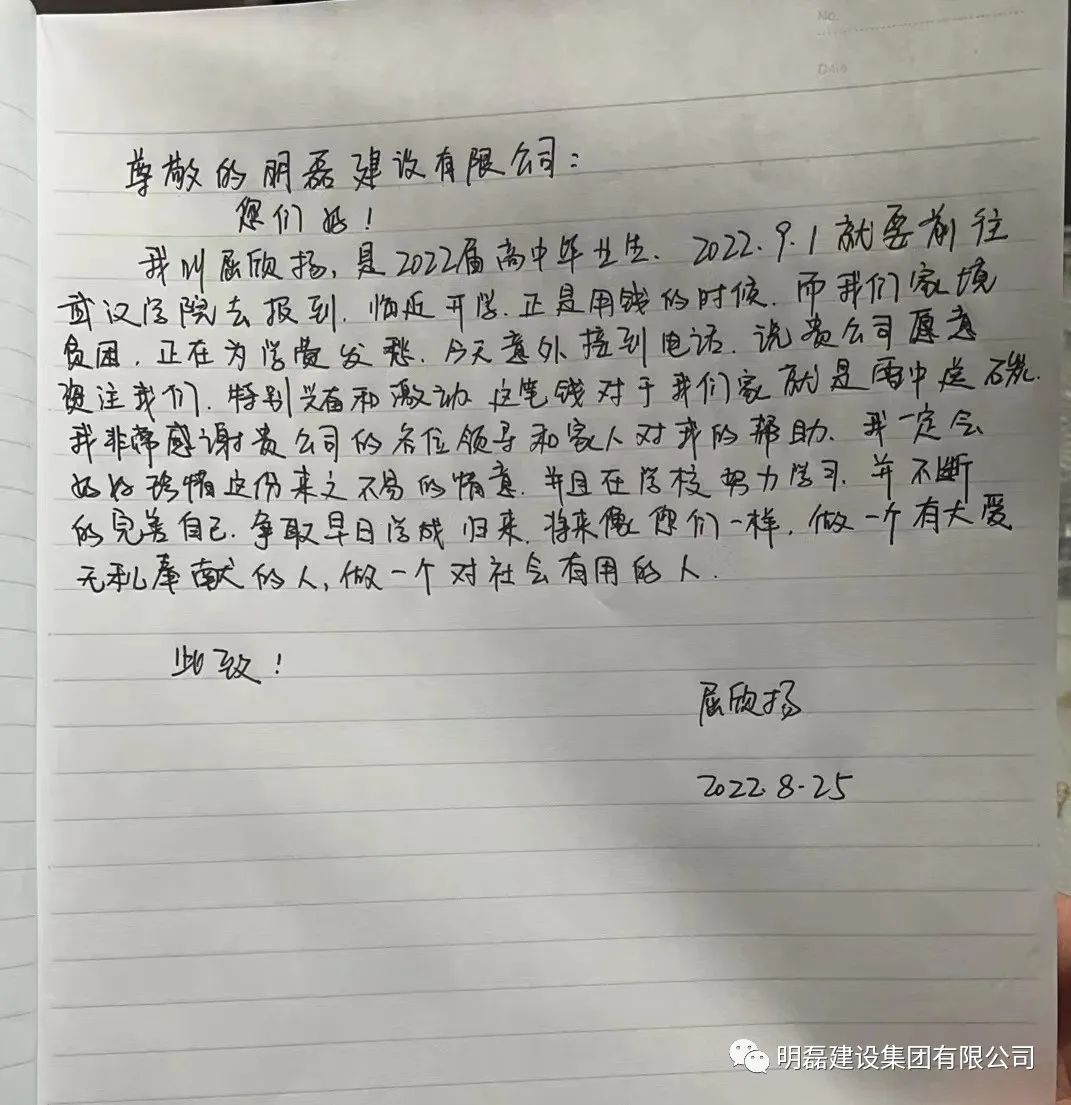 No.
Date
尊敬的明磊建设有限公司：
您们好！
我叫屈欣扬，是2022届高中毕业生．2022.9.1就要前往
武汉学院去报到．临近开学．正是用钱的时候．而我们家境
贫困．正在为学费发愁．今天意外接到电话．说贵公司愿意
资注我们．特别兴奋和激动．这笔钱对于我们家就是雨中送
我非常感谢贵公司的各位领导和家人对我的帮助．我一定会
好好珍惜这份来之不易的情意．并且在学校努力学习．并不断
的完善自己．争取早日学成归来．将来像您们一样．做一个有大爱
无私奉献的人，做一个对社会有用的人．
此致！
屈欣扬
2022.8-25
明磊建设集团有限公司